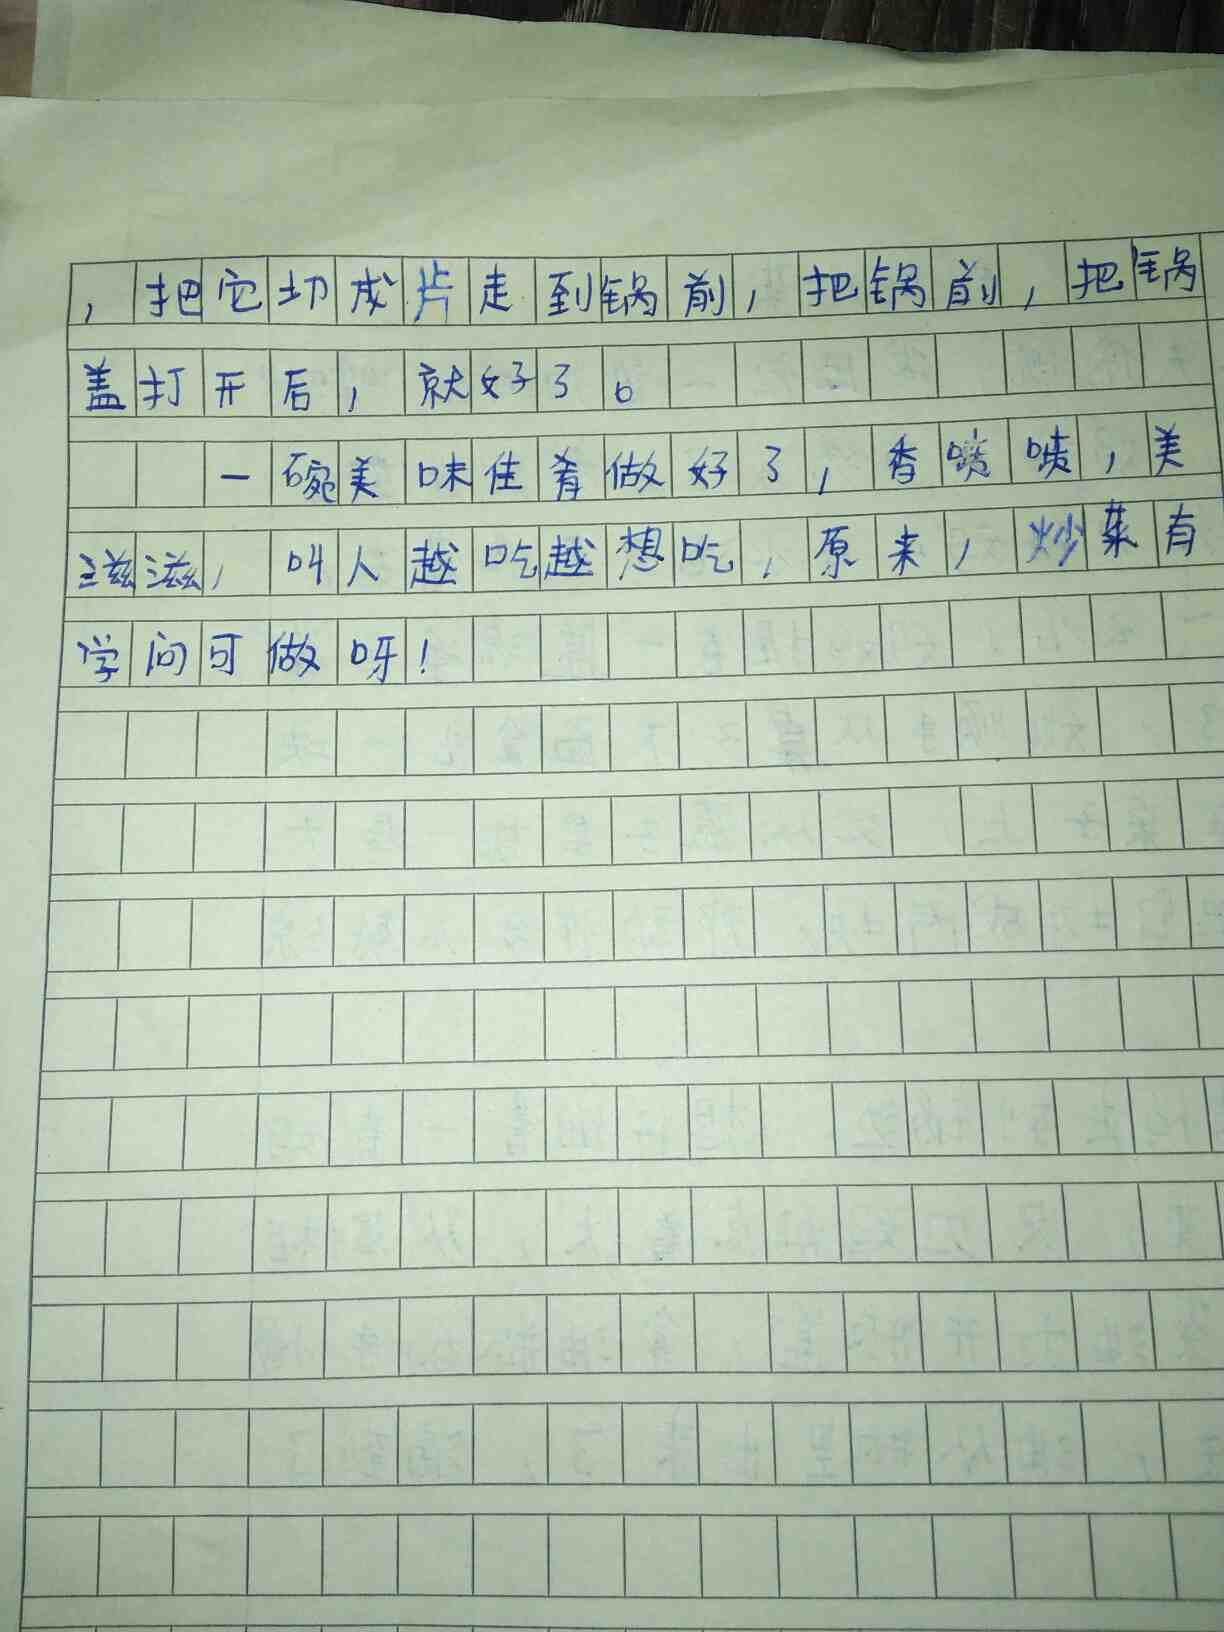 ，把它切成片走到锅前，把锅前，把锅
盖打开后，就好了。
一碗美味佳肴做好了，香喷喷，美
滋滋，叫人越吃越想吃，原来，炒菜有
学问可做呀！